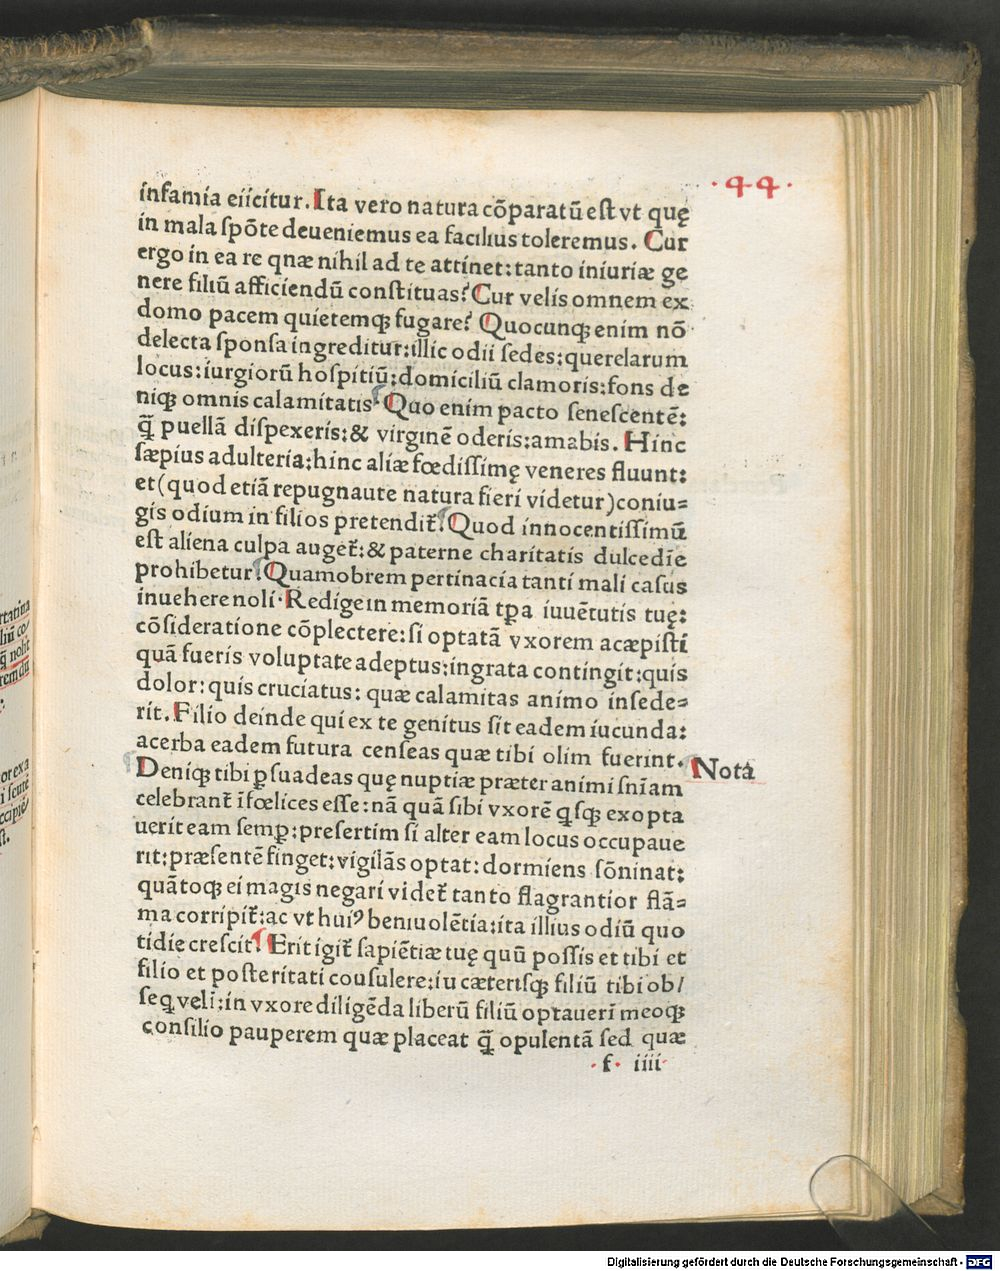 ·44·
infamia eiicitur. Ita vero natura cõparatũ est vt quę
in mala spõte deueniemus ea facilius toleremus. Cur
ergo in ea re qnæ nihil ad te attinet: tanto iniuriæ ge
nere filiũ afficiendũ constituas? Cur velis omnem ex
domo pacem quietemqꝫ fugare? Quocunqꝫ enim nõ
delecta sponsa ingreditur: illic odii sedes: querelarum
locus: iurgiorũ hospitiũ: domiciliũ clamoris: fons de
niqꝫ omnis calamitatis. Quo enim pacto senescentẽ:
q̃ puellã dispexeris: & virginẽ oderis: amabis. Hinc
sæpius adulteria: hinc aliæ fœdissimę veneres fluunt:
et (quod etiã repugnaute natura fieri videtur) coniu-
gis odium in filios pretendit᷑. Quod innocentissimũ
est aliena culpa auget᷑: & paterne charitatis dulcedĩe
prohibetur. Quamobrem pertinacia tanti mali casus
inuehere noli. Redige in memoriã tꝑa iuuẽtutis tuę:
cõsideratione cõplectere: si optatã vxorem acæpisti
quã fueris voluptate adeptus: ingrata contingit: quis
dolor: quis cruciatus: quæ calamitas animo insede-
rit. Filio deinde qui ex te genitus sit eadem iucunda:
acerba eadem futura censeas quæ tibi olim fuerint.
Nota
Deniqꝫ tibi ꝑsuadeas quę nuptiæ præter animi sñiam
celebrant᷑ ĩfœlices esse: nã quã sibi vxorẽ q̃sqꝫ exopta
uerit eam semꝑ: presertim si alter eam locus occupaue
rit: præsentẽ finget: vigilãs optat: dormiens sõninat:
quãtoqꝫ ei magis negari videt᷑ tanto flagrantior flã-
ma corripit᷑: ac vt huiꝰ beniuolẽtia: ita illius odiũ quo
tidie crescit. Erit igit᷑ sapiẽtiæ tuę quũ possis et tibi et
filio et posteritati cousulere: iu cæterisqꝫ filiũ tibi ob/
seq̃ veli: in vxore diligẽda liberũ filiũ optauerĩ meoqꝫ
consilio pauperem quæ placeat q̃ opulentã sed quæ
·f· iiii·
rtatina
liũ co/
q̃ nolit
rem cũ
or ex a
i scurẽ
ccipiẽ/
st.
Digitalisierung gefördert durch die Deutsche Forschungsgemeinschaft - DFG